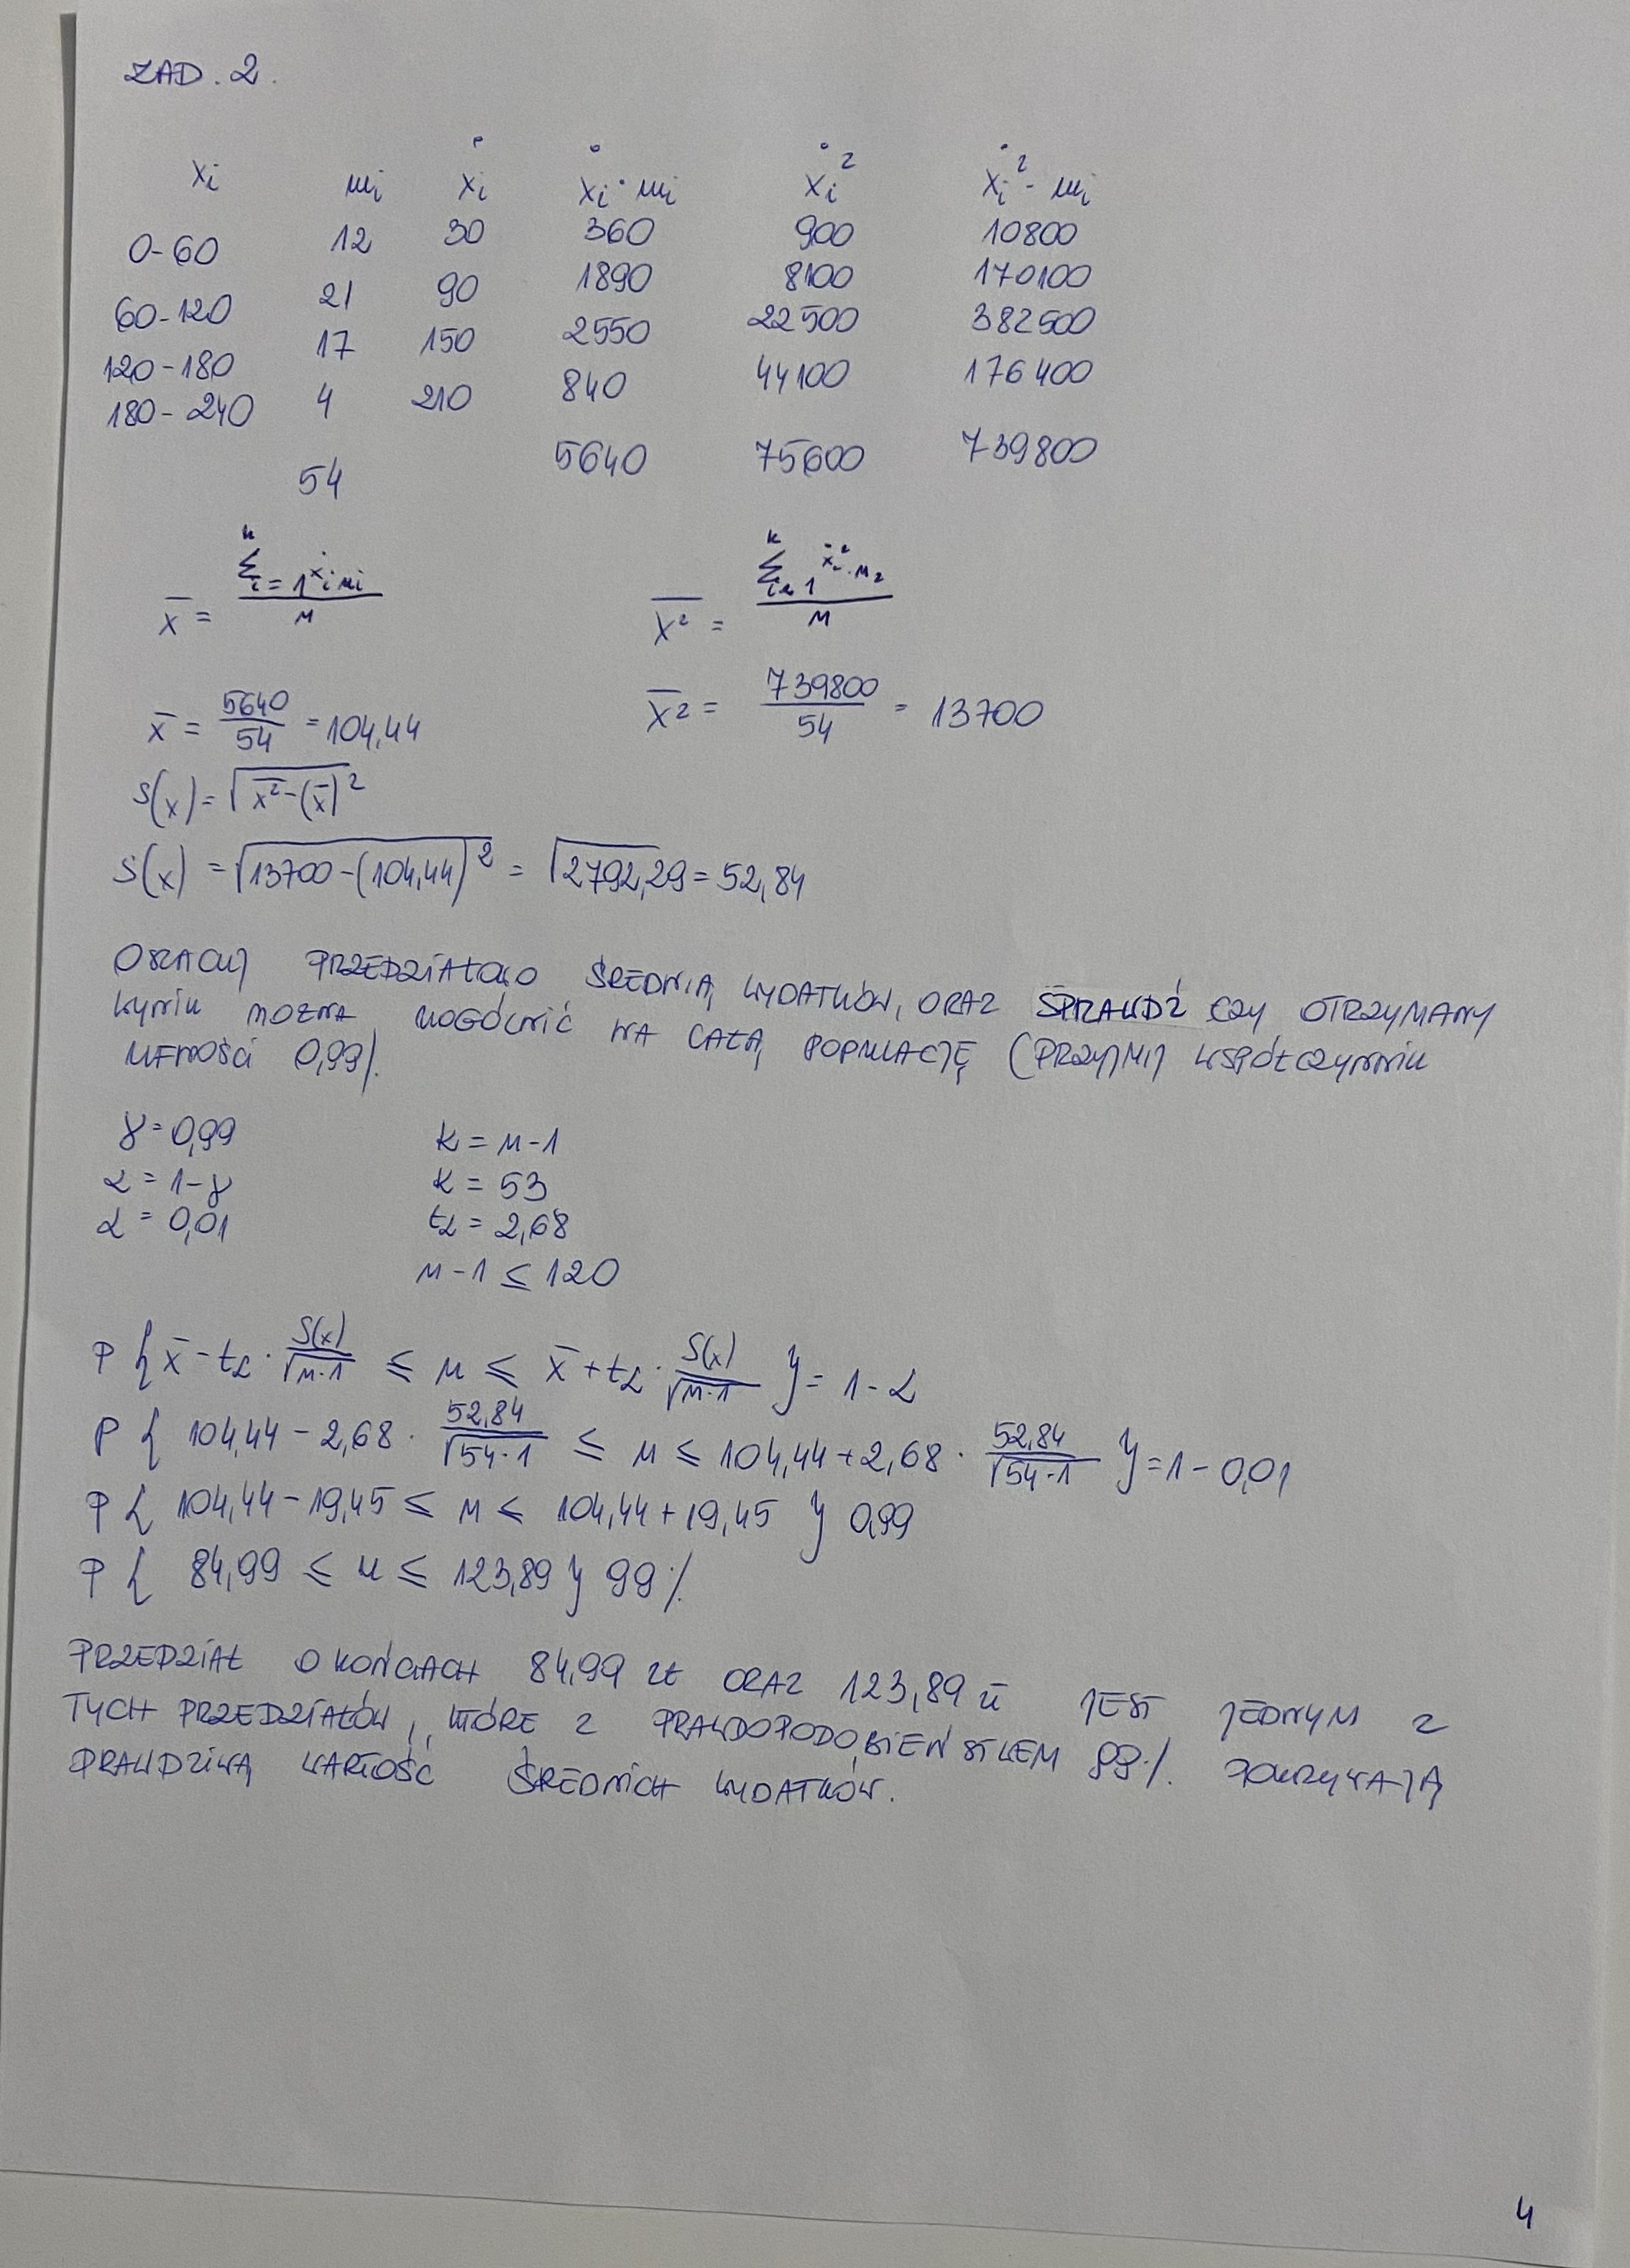 ZAD. 2.
xi ni ẋi ẋi·ni ẋi² ẋi²·ni
0-60 12 30 360 900 10800
60-120 21 90 1890 8100 170100
120-180 17 150 2550 22500 382500
180-240 4 210 840 44100 176400
54 5640 75600 739800
x̄ = (Σ k i=1 ẋi ni) / n
x̄² = (Σ k i=1 ẋi²·ni) / n
x̄ = 5640/54 = 104,44
x̄² = 739800/54 = 13700
S(x) = √x̄²-(x̄)²
S(x) = √13700-(104,44)² = √2792,29 = 52,84
OSZACUJ PRZEDZIAŁOWO ŚREDNIĄ WYDATKÓW, ORAZ SPRAWDŹ CZY OTRZYMANY
WYNIK MOŻNA UOGÓLNIĆ NA CAŁĄ POPULACJĘ (PRZYJMIJ WSPÓŁCZYNNIK
UFNOŚCI 0,99).
γ = 0,99 k = n-1
α = 1-γ k = 53
α = 0,01 tα = 2,68
n-1 ≤ 120
P { x̄ - tα · S(x)/√n-1 ≤ u ≤ x̄ + tα · S(x)/√n-1 } = 1-α
P { 104,44 - 2,68 · 52,84/√54-1 ≤ u ≤ 104,44 + 2,68 · 52,84/√54-1 } = 1-0,01
P { 104,44-19,45 ≤ u ≤ 104,44+19,45 } 0,99
P { 84,99 ≤ u ≤ 123,89 } 99%
PRZEDZIAŁ O KOŃCACH 84,99 zł ORAZ 123,89 zł JEST JEDNYM Z
TYCH PRZEDZIAŁÓW, KTÓRE Z PRAWDOPODOBIEŃSTWEM 99% POKRYWAJĄ
PRAWDZIWĄ WARTOŚĆ ŚREDNICH WYDATKÓW.
4